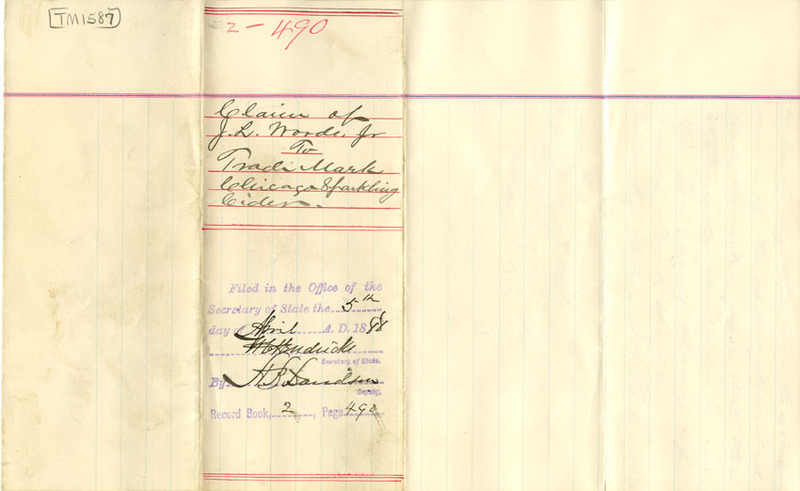 TM1587
2-490
Claim of
J. L. Woods, Jr
To
Trade Mark
Chicago Sparkling
Cider.
Filed in the Office of the
Secretary of State the 5th
day of April A. D. 1888
W C Hendricks
Secretary of State.
By A. B. Davidson
Deputy.
Record Book, 2, Page 490